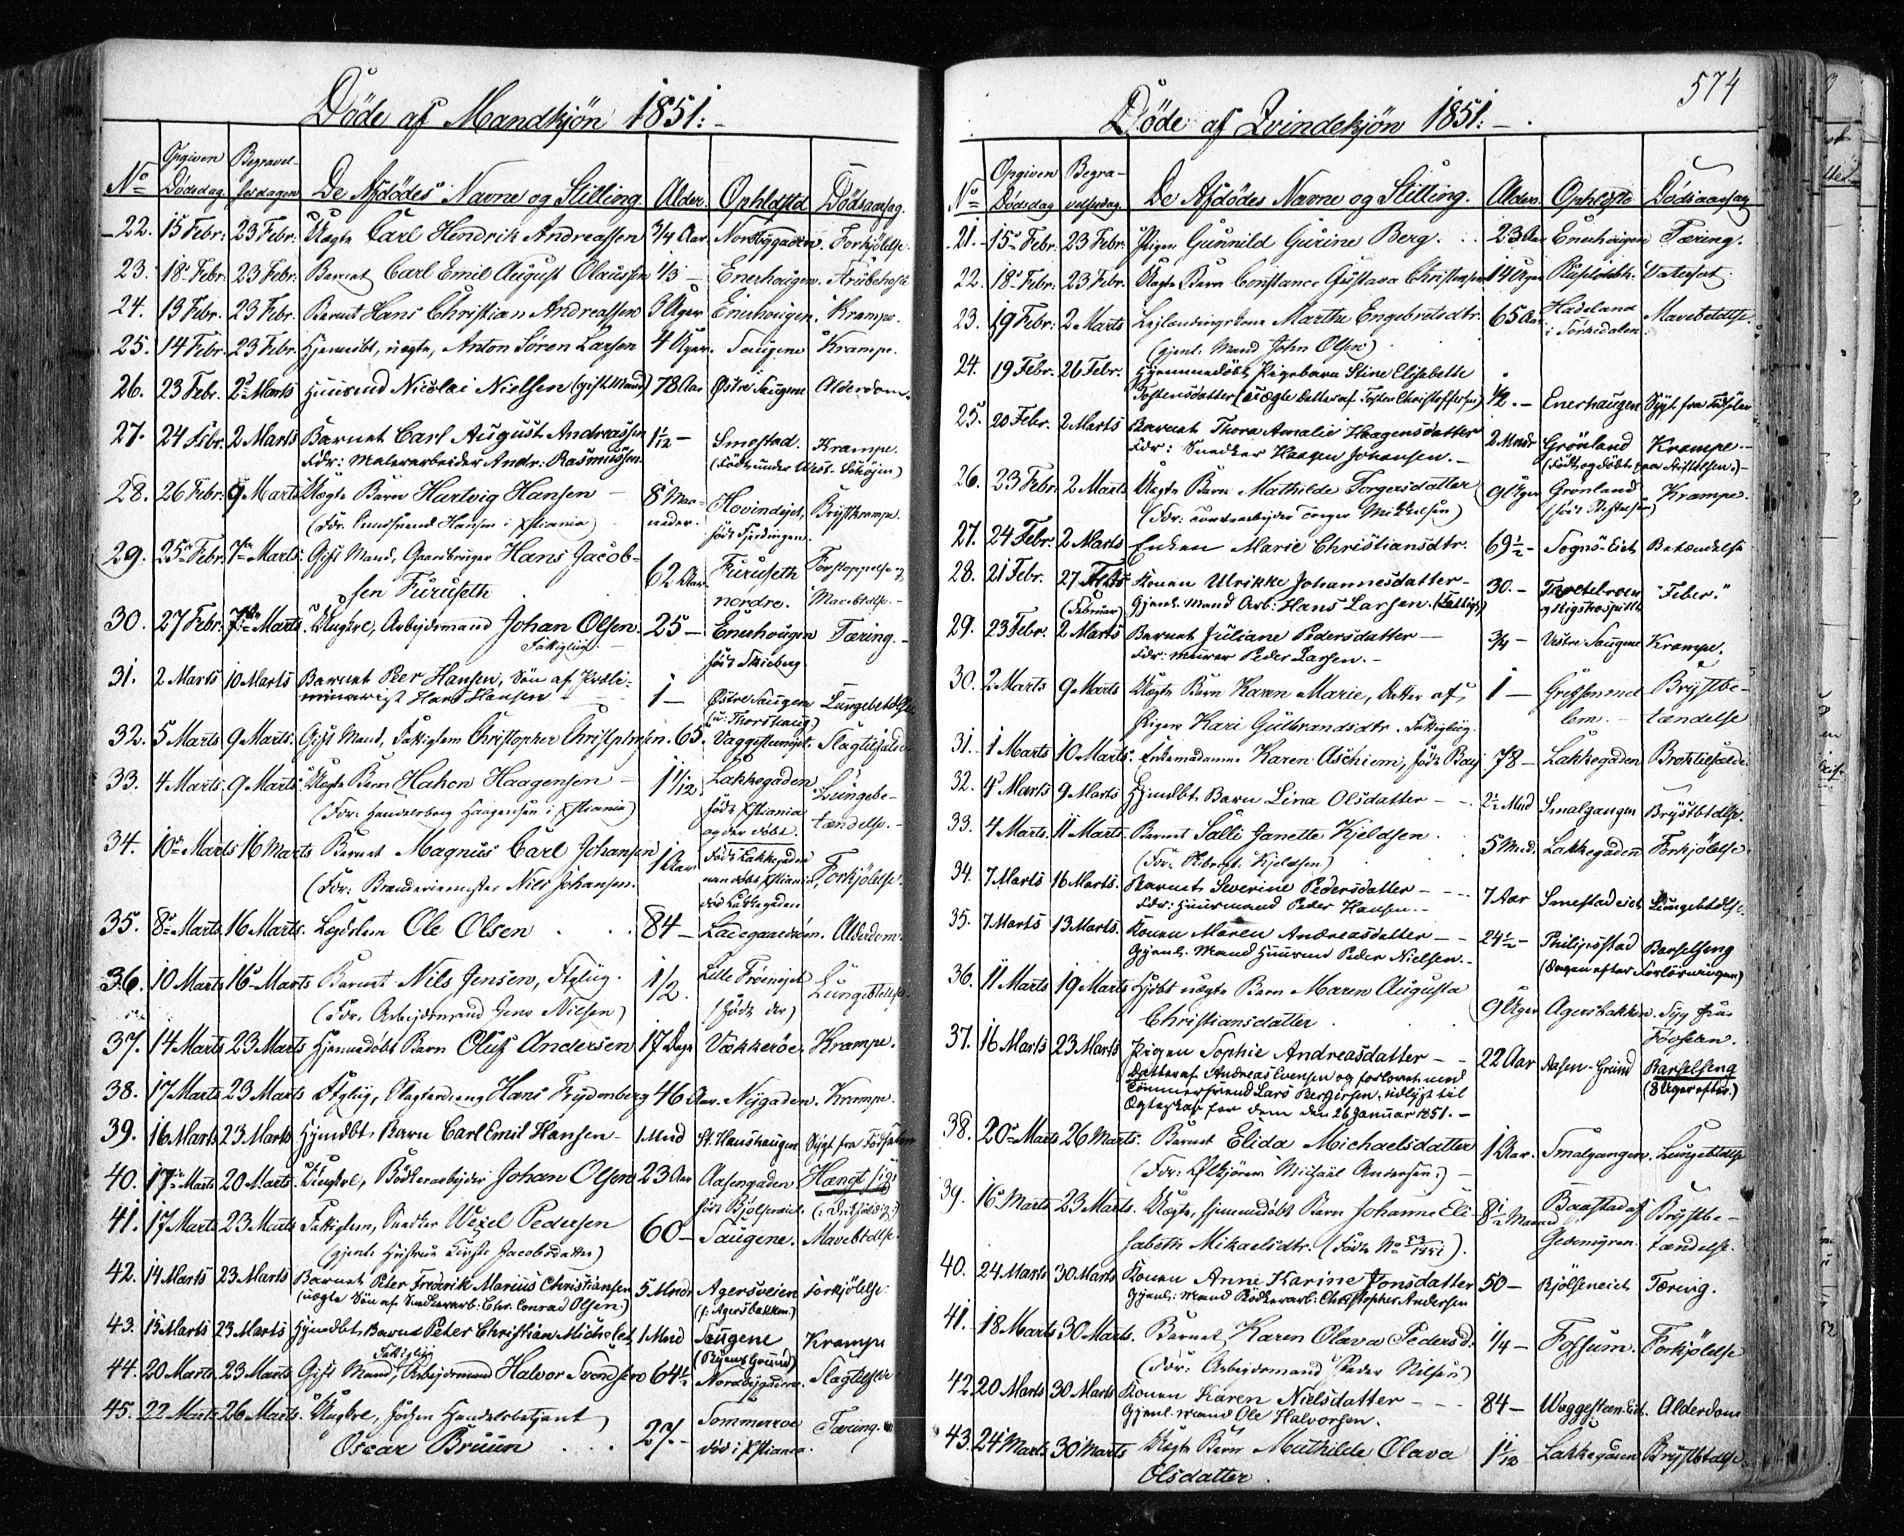 574
Døde af Mandkjøn 1851.
No Opgiven Dødsdag. Begravelsesdagen De Afdødes Navne og Stilling. Alder. Opholdstd Dødsaarsag.
22. 15 Febr. 23 Febr. Uægte Carl Hendrik Andreassen 3/4 Aar. Nordbygaden. Forkjølelse.
23. 18 Febr. 23 Febr. Barnet Carl Emil August Olaussen 1/3 — Enerhougen.
24. 19 Febr. 23 Febr. Barnet Hans Christian Andreassen 3 Uger Enerhougen. Krampe.
25. 14 Febr. 23 Febr. Hjemmedbt, uægte, Anton Søren Larsen 4 Uger. Saugene Krampe.
26. 23 Febr. 2 Marts Huusmd Nicolai Nielsen (gift Mand) 78 Aar Østre Saugene Alderdom.
27. 24 Febr. 2 Marts Barnet Carl August Andreassen 1/12 — Smestad. Krampe.
Fdr: Malerarbeider Andr: Rasmussen. (Født under Vest.
28. 26 Febr. 9 Marts Uægte Barn Hartvig Hansen — 8 Maaneder. Hovindejet, Brystkrampe.
(Fdr. Hansen i Xstiania) født Fjerdingen.
29. 25 Febr. 7 Marts. Gift Mand, Gaardbruger Hans Jacob-
sen Furuseth 62 Aar. Furuseth nordre. Forstoppelse og Mavebtdlse.
30. 27 Febr. 7 Marts. Ungkrl, Arbejdsmand Johan Olsen. 25 — Enerhougen Tæring.
Fattiglig. født Skieberg
31. 2 Marts 10 Marts Barnet Peer Hansen, Søn af
Hans Hansen 1 — Østre Saugen Lungebetdlse
(u: Thorshaug.)
32. 5 Marts 9 Marts. Gift Mand, Fattiglem Christopher Christophersen. 65. Vaggesteensejet.
33. 4 Marts. 9 Marts Uægte Barn Hakon Haagensen — 1 1/12 Lakkegaden Lungebe-
(Fdr. Haagensen i Xstiania) født Xstiania og der døbt. tændelse.
34. 10 Marts 16 Marts Barnet Magnus Carl Johansen 1 Aar Født Lakkegaden Forkjølelse.
(Fdr: Brænderiemester Nils Johansen. død Lakkegaden
35. 8 Marts 16 Marts. Lægdslem Ole Olsen 84 — Ladegaardsøen. Alderdom.
36. 10 Marts 16 Marts Barnet Nils Jensen, 1/2. Lille Frøenejet Lungebtdlse.
(Fdr. Arbejdsmand Jens Nielsen) (født der)
37. 14 Marts 23 Marts Hjemmedøbt Barn Oluf Andersen 17 Dage Vækkerøe. Krampe.
38. 17 Marts 23 Marts Ftglig, Slagterdreng Hans Frydenberg 46 Aar. Nygaden. Krampe.
39. 16 Marts 23 Marts Hjmdbt Barn Carl Emil Hansen — 1 Mnd St. Hanshaugen Sygt fra Fødselen
40. 17 Marts 20 Marts. Ungkrl, Bødkerarbejder Johan Olsen 23 Aar Aasengaden Hængt sig
født Bjølseneiet
41. 17 Marts 23 Marts Fattiglem, Snedker Wezel Pedersen 60 — Saugene. Mavebtdlse.
(gjenl: Hustrue Kirsti Jacobsdatter)
42. 14 Marts 23 Marts Barnet Peter Frederik Marius Christiansen 5 Mndr Agersveien Forkjølelse.
(uægte Søn af Snedkerarb: Chr. Conrad Olsen.) (: Agersbakken)
43. 15 Marts 23 Marts Hjmdbt Barn Peter Christian Michelet, 1 Mnd Saugene Krampe
(Byens Grund)
44. 20 Marts 23 Marts Gift Mand, Fattiglig Arbejdsmand Halvor Svendsen 64 1/2 Nordbygaden.
45. 22 Marts 26 Marts. Ungkrl, Handelsbetjent
Oscar Bruun 27. — Sommerroe Tæring.
død i Xstiania.
Døde af Qvindekjøn 1851.
No Opgiven Dødsdag Begravelsesdag De Afdødes Navne og Stilling. Alder. Opholdste Dødsaarsag
21. 15 Febr. 23 Febr. Pigen Gunnild Gurine Berg. 23 Aar Enerhougen Tæring.
22. 18 Febr. 23 Febr. Uægte Barn Constance Gustava Christensen 14 Uger Vatersot.
23. 19 Febr. 2 Marts Marthe Engebretsdtr. 65 Aar Hadeland i Sørkedalen. Mavebetdlse.
(gjenl. Mand John Olsen)
24. 19 Febr. 26 Febr. Hjemmedøbt Pigebarn Stine Elisabeth
Tostensdatter (uægte Datter af Tosten Christoffersen) 1/2. — Enerhaugen Sygt fra Fødselen
25. 20 Febr. 2 Marts Barnet Thora Amalie Haagensdatter 2 Mndr Grønland Krampe. —
Fdr: Snedker Haagen Johansen. — (Født og døbt paa Stiftelsen.)
26. 23 Febr. 2 Marts Uægte Barn Mathilde Torgersdatter 9 Uger Grønland Krampe.
(Fdr: Torger Mikkelsen) (født Stiftelsen)
27. 24 Febr. 2 Marts Enken Marie Christiansdtr. 69 1/2 — Sogns-Eiet Betændelse
28. 21 Febr. 27 Febr. (Februar) Konen Ulrikke Johannesdatter — 30. — "Feber."
Gjenl. Mand Arb: Hans Larsen. (Fattigl.) Rigshospitlt
29. 23 Febr. 2 Marts Barnet Juliane Pedersdatter — 3/4 — Vestre Saugene Krampe.
Fdr: Murer Peder Larsen. —
30. 2 Marts 9 Marts Uægte Barn Karen Marie, Datter af, 1 — Brystbe-
Pigen Kari Gulbrandsdtr. Fattiglig. tændelse
31. 1 Marts 10 Marts. Enkemadame Karen Aschiem, født Bay 78 — Lakkegaden
32. 4 Marts 9 Marts Hjmdbt Barn Lina Olsdatter — 2 1/2 Mnd Smalgangen Brystbtdlse.
33. 4 Marts. 11 Marts. Barnet Salli Janette Kjeldsen. 5 Mnd. Lakkegaden Forkjølelse.
(Fdr: Kjeldsen)
34. 7 Marts 16 Marts. Barnet Severine Pedersdatter — 7 Aar Smestadeiet Lungebtdlse.
Fdr: Huusmand Peder Hansen. —
35. 7 Marts 13 Marts. Konen Maren Andreasdatter — 24 1/2 — Philipsstad Barselseng
Gjenl. Mand Huusmd Peder Nielsen. — (Dagen efter Forløsningen)
36. 11 Marts 19 Marts Hjdbt uægte Barn Maren Augusta
Christiansdatter. 9 Uger Agersbakken. Syg fra Fødselen.
37. 16 Marts 23 Marts Pigen Sophie Andreasdatter — 22 Aar Aasen-Grund Barselseng
Datter af Andreas Evensen og forlovet med (3 Uger efter.)
Tømmersvend Lars Bergersen, udlyst til
Ægteskab for dem den 26 Januar 1851. —
38. 20 Marts 26 Marts. Barnet Elida Michaelsdatter 1 Aar. Smalgangen. Lungebtdlse
(Fdr: Ølkjører Michael Andersen.) —
39. 16 Marts 23 Marts. Uægte, hjemmedøbt Barn Johanne Eli- 8 1/2 Maaned Brystbe-
sabeth Mikaelsdtr. (Født No 53/1851). Gedemyren. tændelse.
40. 24 Marts 30 Marts Konen Anne Karine Jonsdatter 50 — Bjølseneiet Tæring.
Gjenl. Mand Bødkerarb: Christopher Andersen
41. 18 Marts 30 Marts. Barnet Karen Olava Pedersd. 1/4 — Fossum. Forkjølelse
(Fdr: Arbejdsmand Peder Nilsen)
42. 20 Marts 30 Marts Konen Karen Nielsdatter — 84 — Waggesteen-Eiet Alderdom
Gjenl. Mand Ole Halvorsen.
43. 24 Marts 30 Marts Uægte Barn Mathilde Olava 1 1/12 Lakkegaden Brystbtdlse.
Olsdatter.